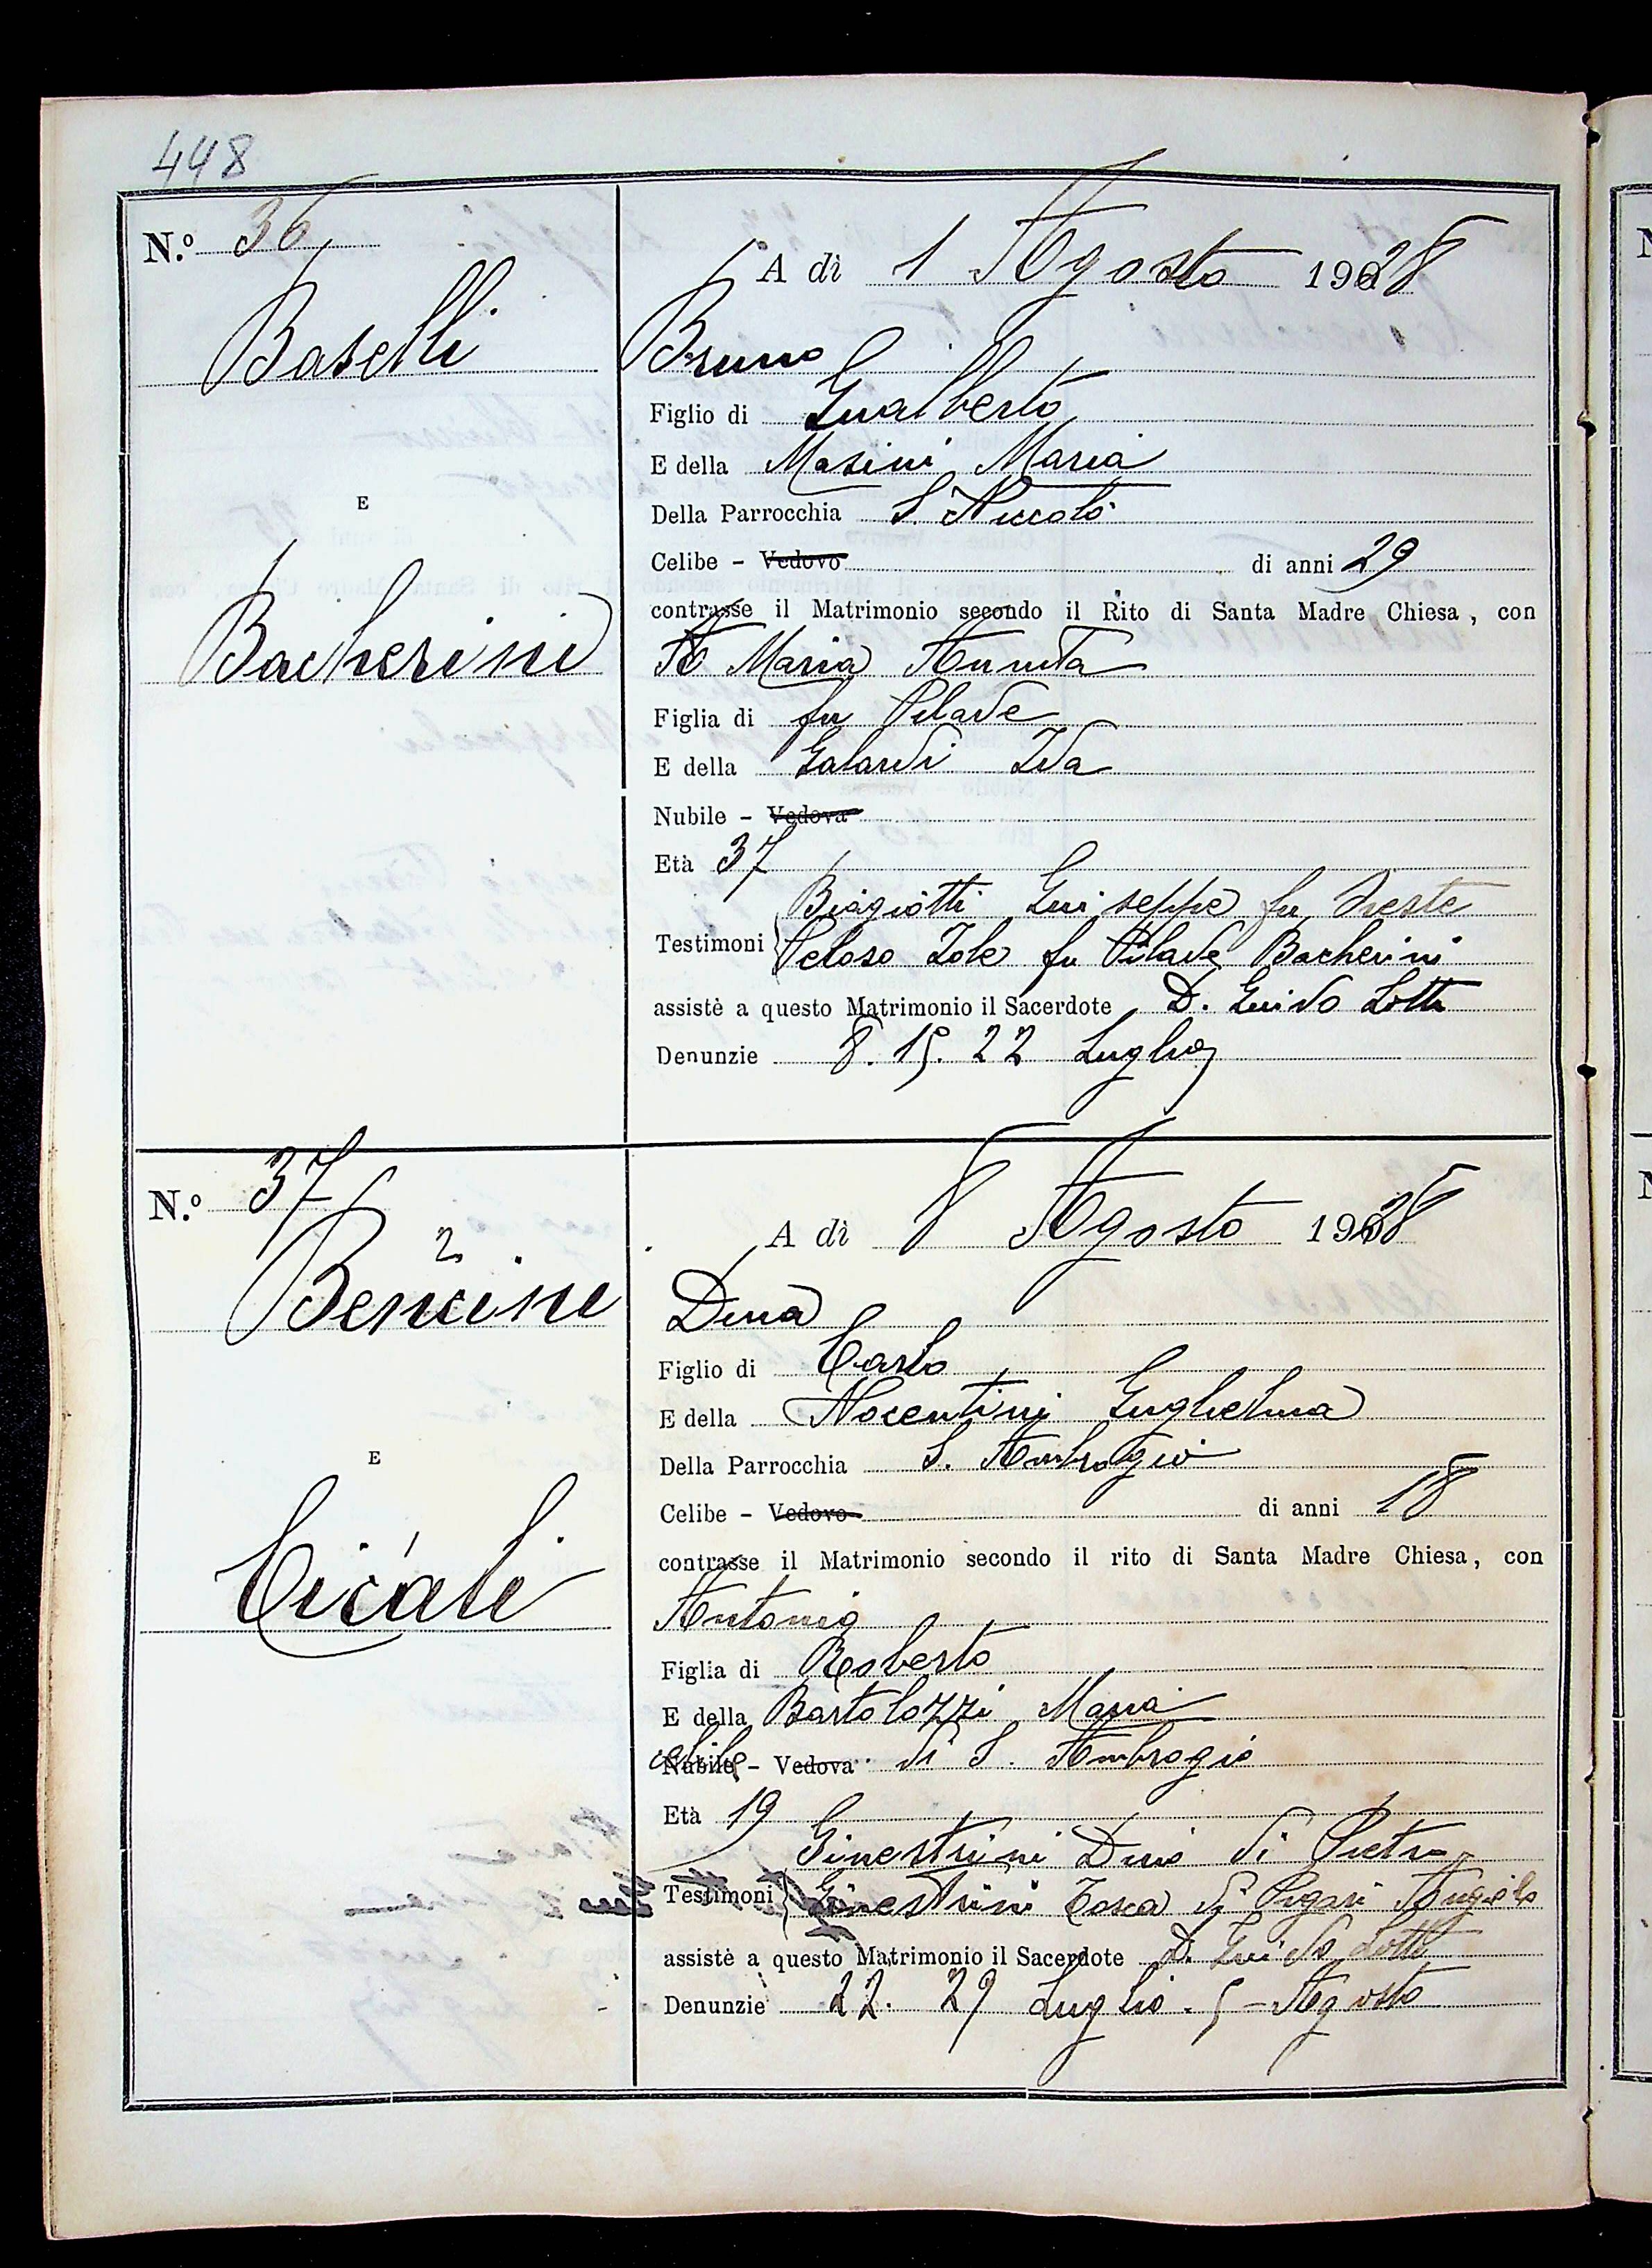 448
N.º 36
A dì 1 Agosto 1928
Baselli
Bruno
Figlio di Gualberto
E della Masini Maria
Della Parrocchia S. Niccolò
E
Celibe - Vedovo di anni 29
contrasse il Matrimonio secondo il Rito di Santa Madre Chiesa, con
Bacherini
Maria Annita
Figlia di fu Pilade
E della Galardi Ida
Nubile - Vedova
Età 37
Biagiotti Giuseppe fu Oreste
Testimoni Peloso Iole fu Pilade Bacherini
assistè a questo Matrimonio il Sacerdote D. Guido Lotti
Denunzie 8. 15. 22 Luglio
N.º 37
A dì 8 Agosto 1928
2
Bencini
Dina
Figlio di Carlo
E della Nocentini Guglielma
Della Parrocchia S. Ambrogio
E
Celibe - Vedovo di anni 18
contrasse il Matrimonio secondo il rito di Santa Madre Chiesa, con
Cicali
Antonio
Figlia di Roberto
E della Bartolozzi Maria
Nubile - Vedova di S. Ambrogio
Età 19
Ginestrini Dino di Pietro
Testimoni Ginestrini Tosca di Angiolo
assistè a questo Matrimonio il Sacerdote D. Guido Lotti
Denunzie 22. 29 Luglio. 5 - Agosto